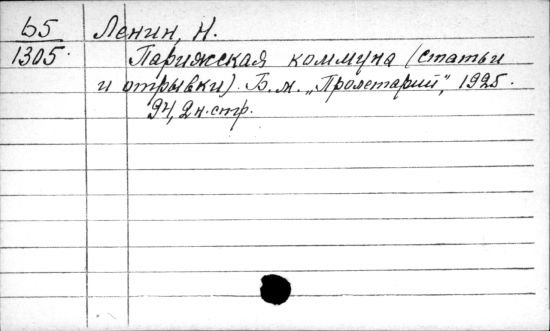 Ь5 Ленин, Н.
1305. Парижская коммуна (статьи
и отрывки). Б. м. „Пролетарий", 1925.
94, 2 н. стр.